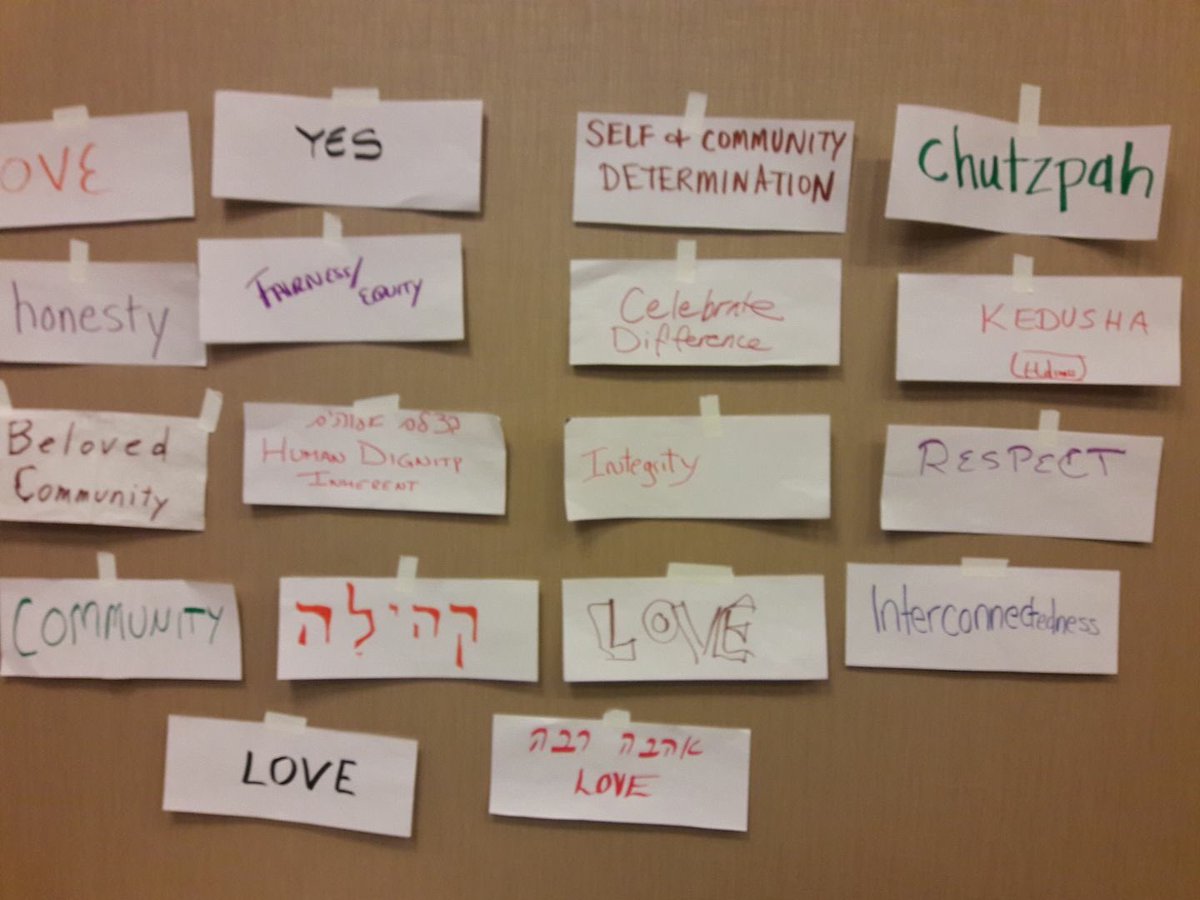 OVE
YES
SELF & COMMUNITY
DETERMINATION
Chutzpah
honesty
FAIRNESS/
EQUITY
Celebrate
Difference
KEDUSHA
Beloved
Community
בצלם אלוהים
HUMAN DIGNITY
INHERENT
Integrity
RESPECT
COMMUNITY
קהילה
LOVE
Interconnectedness
LOVE
אהבה רבה
LOVE